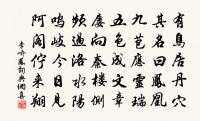 有鳥居丹穴
其名曰鳳凰
九苞應靈瑞
五色成文章
屢向秦樓側
頻過洛水陽
鳴岐今日見
阿閣佇來翔
李嶠鳳詞典網